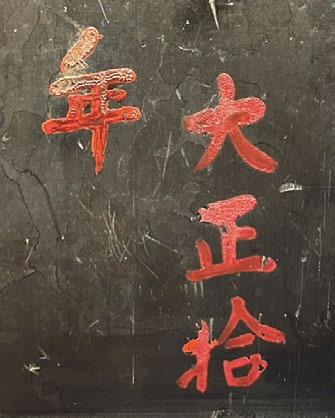 大正拾
年